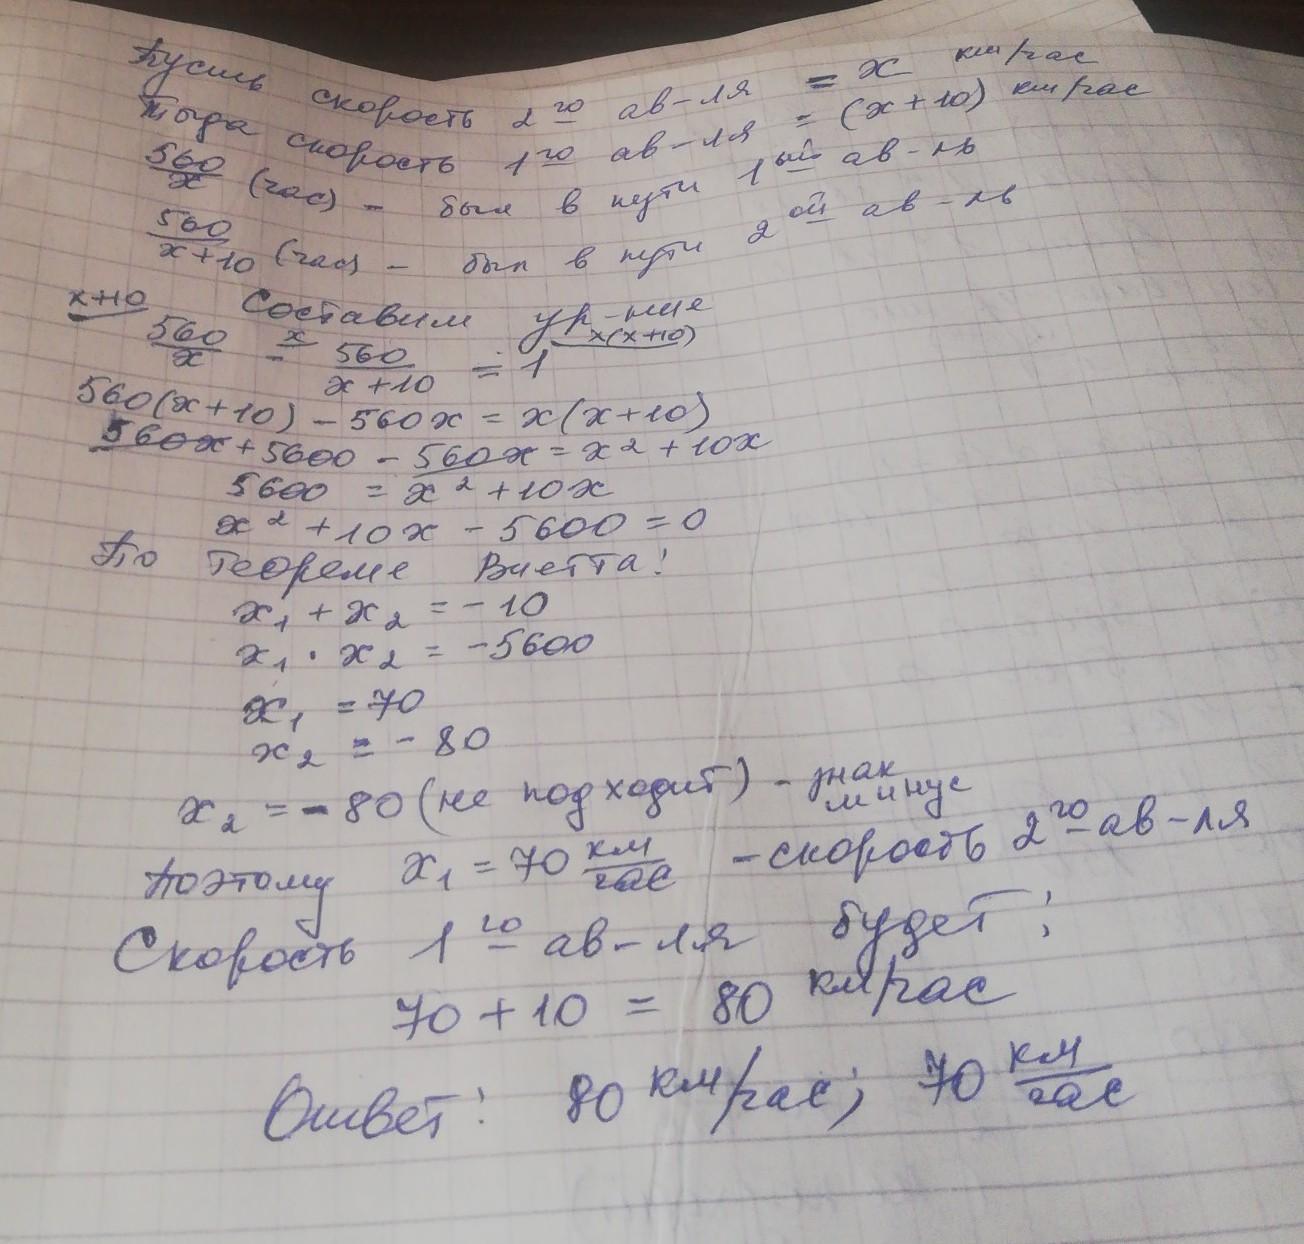 Пусть скорость 2го ав-ля = x км/час
Тогда скорость 1го ав-ля = (x+10) км/час
560/x (час) - был в пути 1ый ав-ль
560/x+10 (час) - был в пути 2ой ав-ль
Составим ур-ние
x+10 x x(x+10)
560/x - 560/x+10 = 1
560(x+10) - 560x = x(x+10)
560x + 5600 - 560x = x² + 10x
5600 = x² + 10x
x² + 10x - 5600 = 0
По Теореме Виетта:
x₁ + x₂ = -10
x₁ · x₂ = -5600
x₁ = 70
x₂ = -80
x₂ = -80 (не подходит) - знак минус
Поэтому x₁ = 70 км/час - скорость 2го ав-ля
Скорость 1го ав-ля будет:
70 + 10 = 80 км/час
Ответ: 80 км/час; 70 км/час